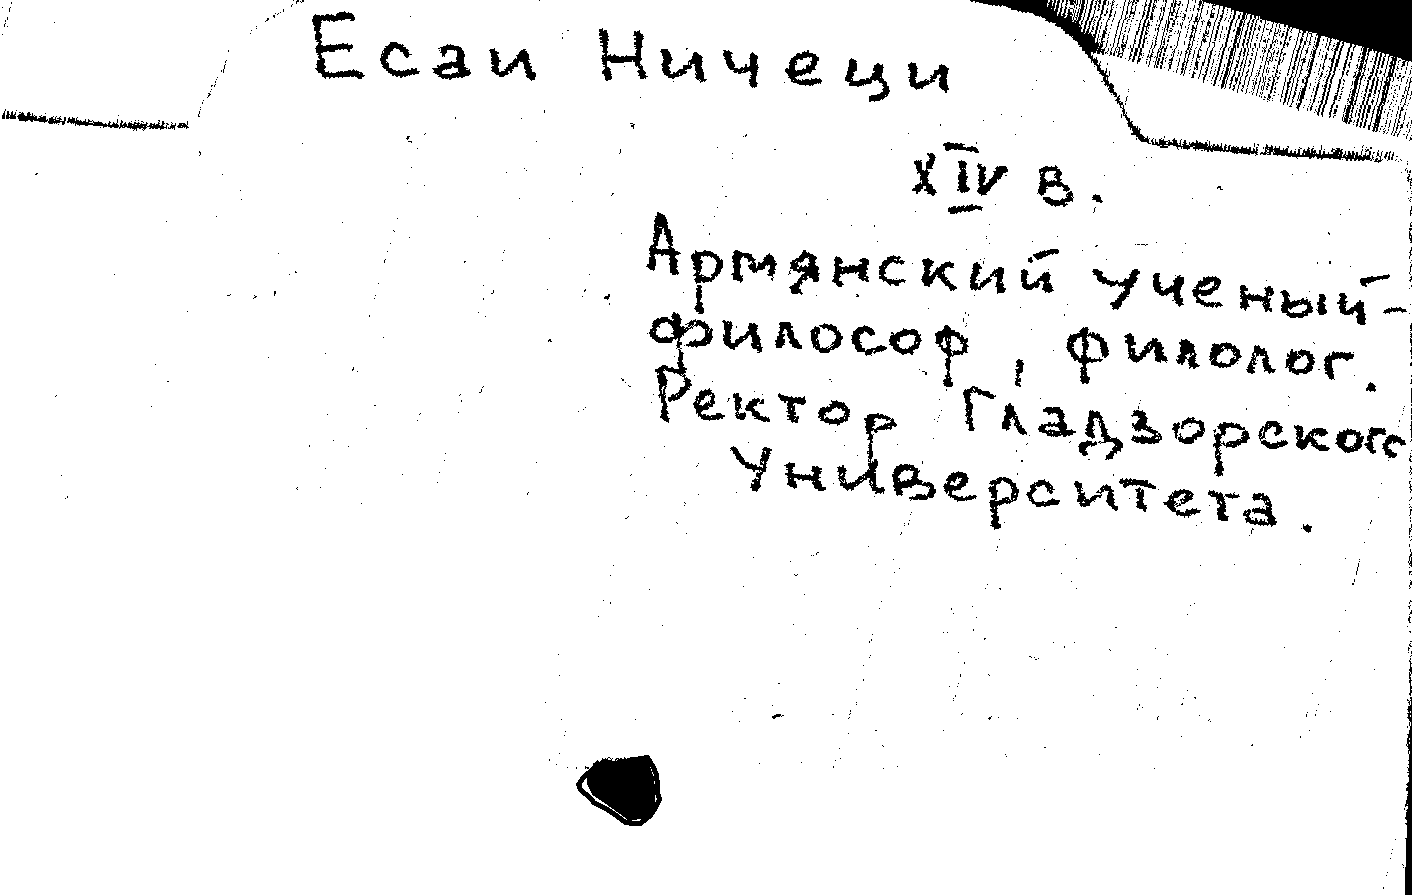 Есаи Ничеци
XIV в.
Армянский ученый-
философ, филолог.
Ректор Гладзорского
Университета.